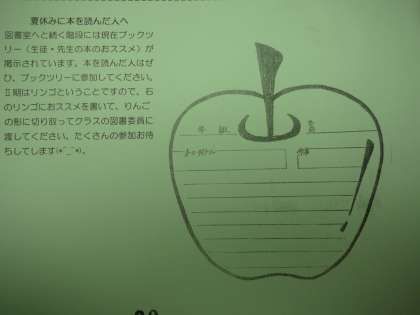 夏休みに本を読んだ人へ
図書室へと続く階段には現在ブックツ
リー（生徒・先生の本のおススメ）が
掲示されています。本を読んだ人はぜ
ひ、ブックツリーに参加してください。
Ⅱ期はリンゴということですので、右
のリンゴにおススメを書いて、りんご
の形に切り取ってクラスの図書委員に
渡してください。たくさんの参加お待
ちしてします(*^_^*)。
年 組